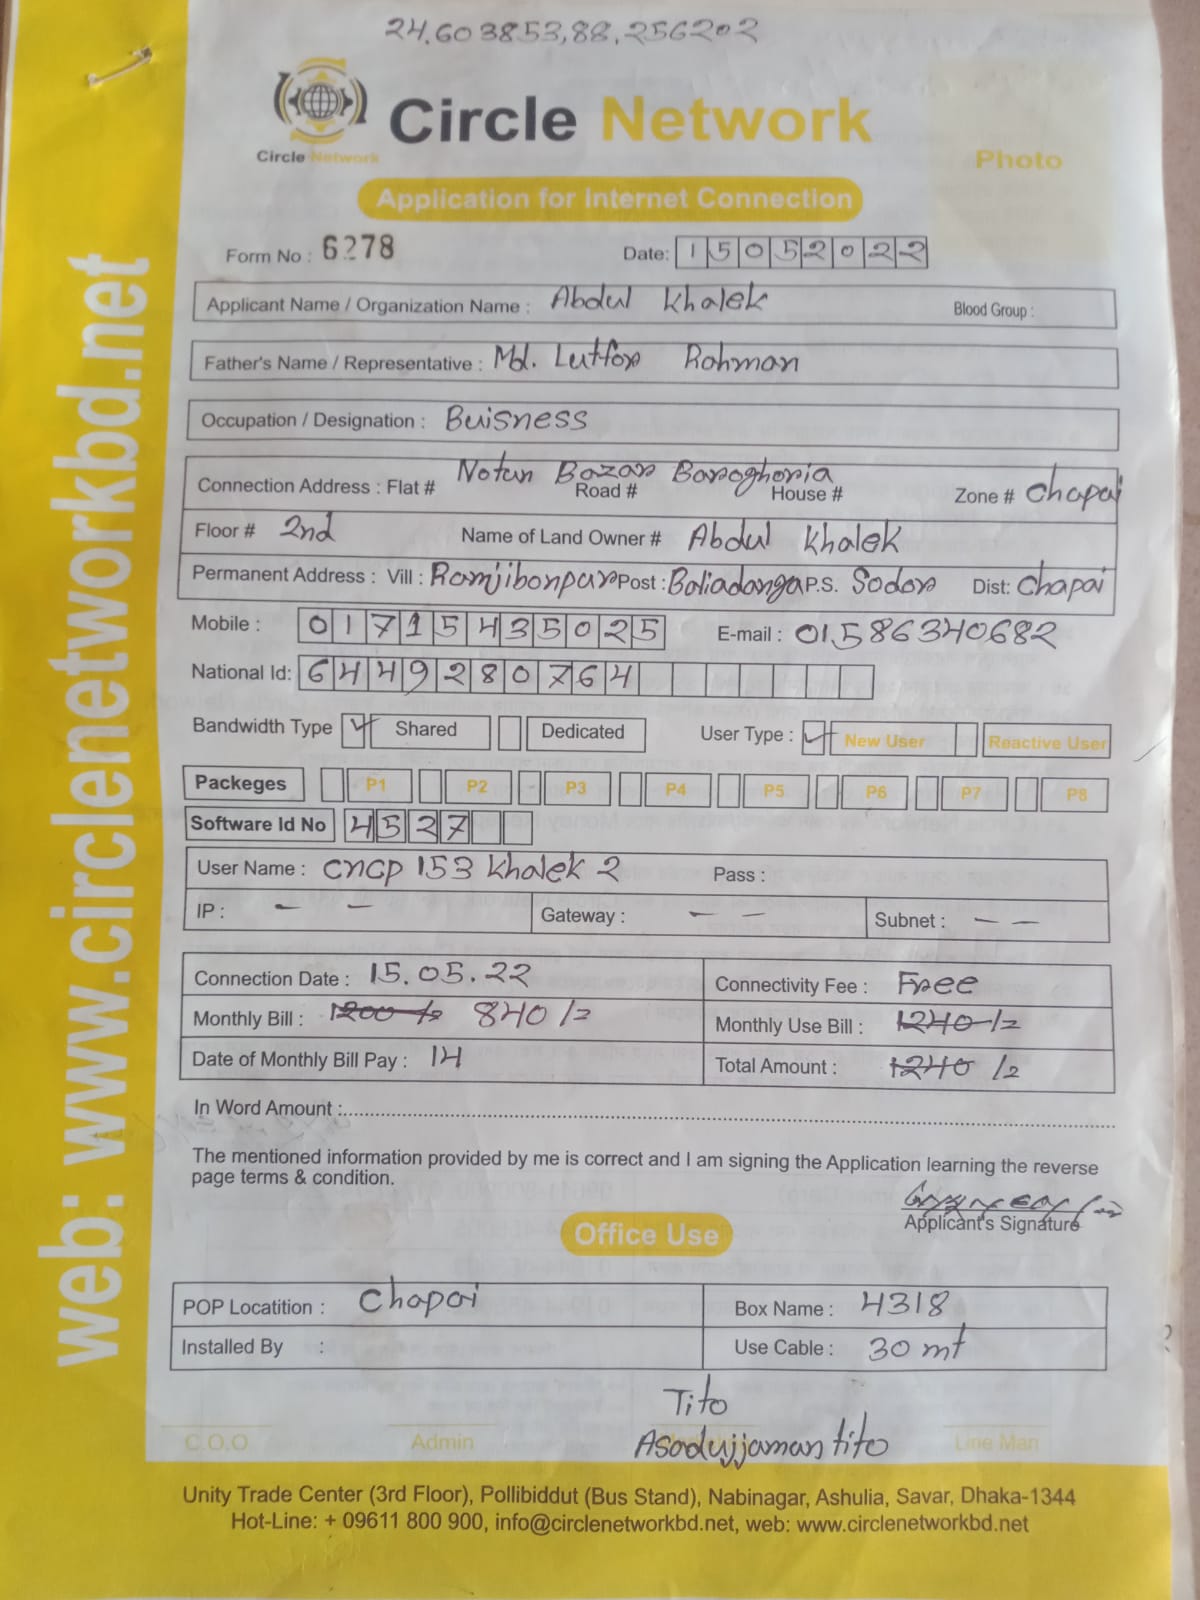 24.603853,88.256202
Circle Network
Circle Network
Photo
Application for Internet Connection
Form No : 6278 Date: 15052022
Applicant Name / Organization Name : Abdul Khalek Blood Group :
Father's Name / Representative : Md. Lutfor Rohman
Occupation / Designation : Buisness
Notun Bazar Baroghoria
Connection Address : Flat # Road # House # Zone # Chapai
Floor # 2nd Name of Land Owner # Abdul Khalek
Permanent Address : Vill : Ramjibonpur Post : Baliadanga P.S. Sodor Dist: Chapai
Mobile : 01715435025 E-mail : 01586340682
National Id: 6449280764
Bandwidth Type Shared Dedicated User Type : New User Reactive User
Packeges P1 P2 P3 P4 P5 P6 P7 P8
Software Id No 4527
User Name : CNCP 153 Khalek 2 Pass :
IP : — — Gateway : — — Subnet : — —
Connection Date : 15.05.22 Connectivity Fee : Free
Monthly Bill : 1200/= 840/= Monthly Use Bill : 1240/=
Date of Monthly Bill Pay : 14 Total Amount : 1240/=
In Word Amount :
The mentioned information provided by me is correct and I am signing the Application learning the reverse
page terms & condition.
Applicant's Signature
Office Use
POP Locatition : Chapai Box Name : 4318
Installed By : Use Cable : 30 mt
Tito
Asadujjaman tito
C.O.O Admin Line Man
Unity Trade Center (3rd Floor), Pollibiddut (Bus Stand), Nabinagar, Ashulia, Savar, Dhaka-1344
Hot-Line: + 09611 800 900, info@circlenetworkbd.net, web: www.circlenetworkbd.net
web: www.circlenetworkbd.net